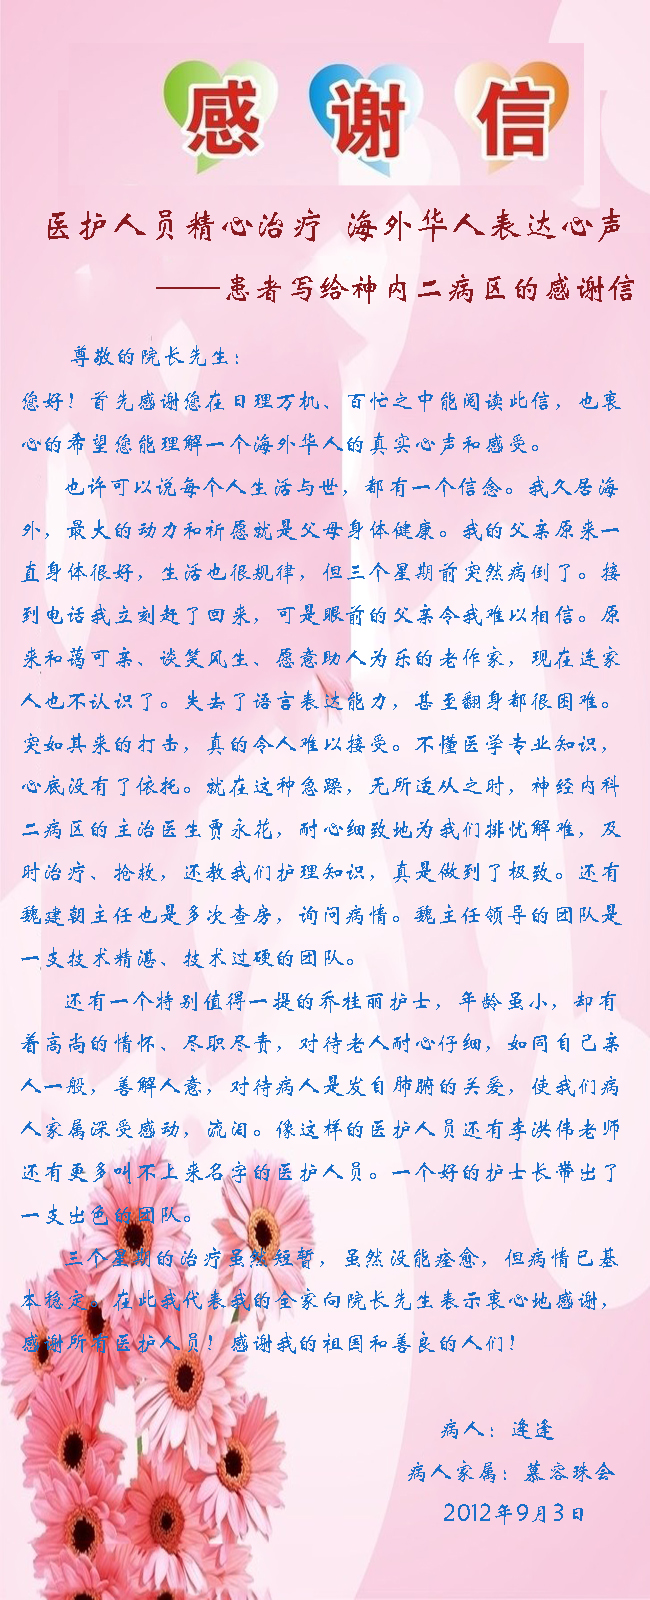 感谢信
医护人员精心治疗 海外华人表达心声
——患者写给神内二病区的感谢信
尊敬的院长先生：
您好！首先感谢您在日理万机、百忙之中能阅读此信，也衷
心的希望您能理解一个海外华人的真实心声和感受。
也许可以说每个人生活与世，都有一个信念。我久居海
外，最大的动力和祈愿就是父母身体健康。我的父亲原来一
直身体很好，生活也很规律，但三个星期前突然病倒了。接
到电话我立刻赶了回来，可是眼前的父亲令我难以相信。原
来和蔼可亲、谈笑风生、愿意助人为乐的老作家，现在连家
人也不认识了。失去了语言表达能力，甚至翻身都很困难。
突如其来的打击，真的令人难以接受。不懂医学专业知识，
心底没有了依托。就在这种急躁，无所适从之时，神经内科
二病区的主治医生贾永花，耐心细致地为我们排忧解难，及
时治疗、抢救，还教我们护理知识，真是做到了极致。还有
魏建朝主任也是多次查房，询问病情。魏主任领导的团队是
一支技术精湛、技术过硬的团队。
还有一个特别值得一提的乔桂丽护士，年龄虽小，却有
着高尚的情怀、尽职尽责，对待老人耐心仔细，如同自己亲
人一般，善解人意，对待病人是发自肺腑的关爱，使我们病
人家属深受感动，流泪。像这样的医护人员还有李洪伟老师
还有更多叫不上来名字的医护人员。一个好的护士长带出了
一支出色的团队。
三个星期的治疗虽然短暂，虽然没能痊愈，但病情已基
本稳定。在此我代表我的全家向院长先生表示衷心地感谢，
感谢所有医护人员！感谢我的祖国和善良的人们！
病人：逄逢
病人家属：慕容珠会
2012年9月3日